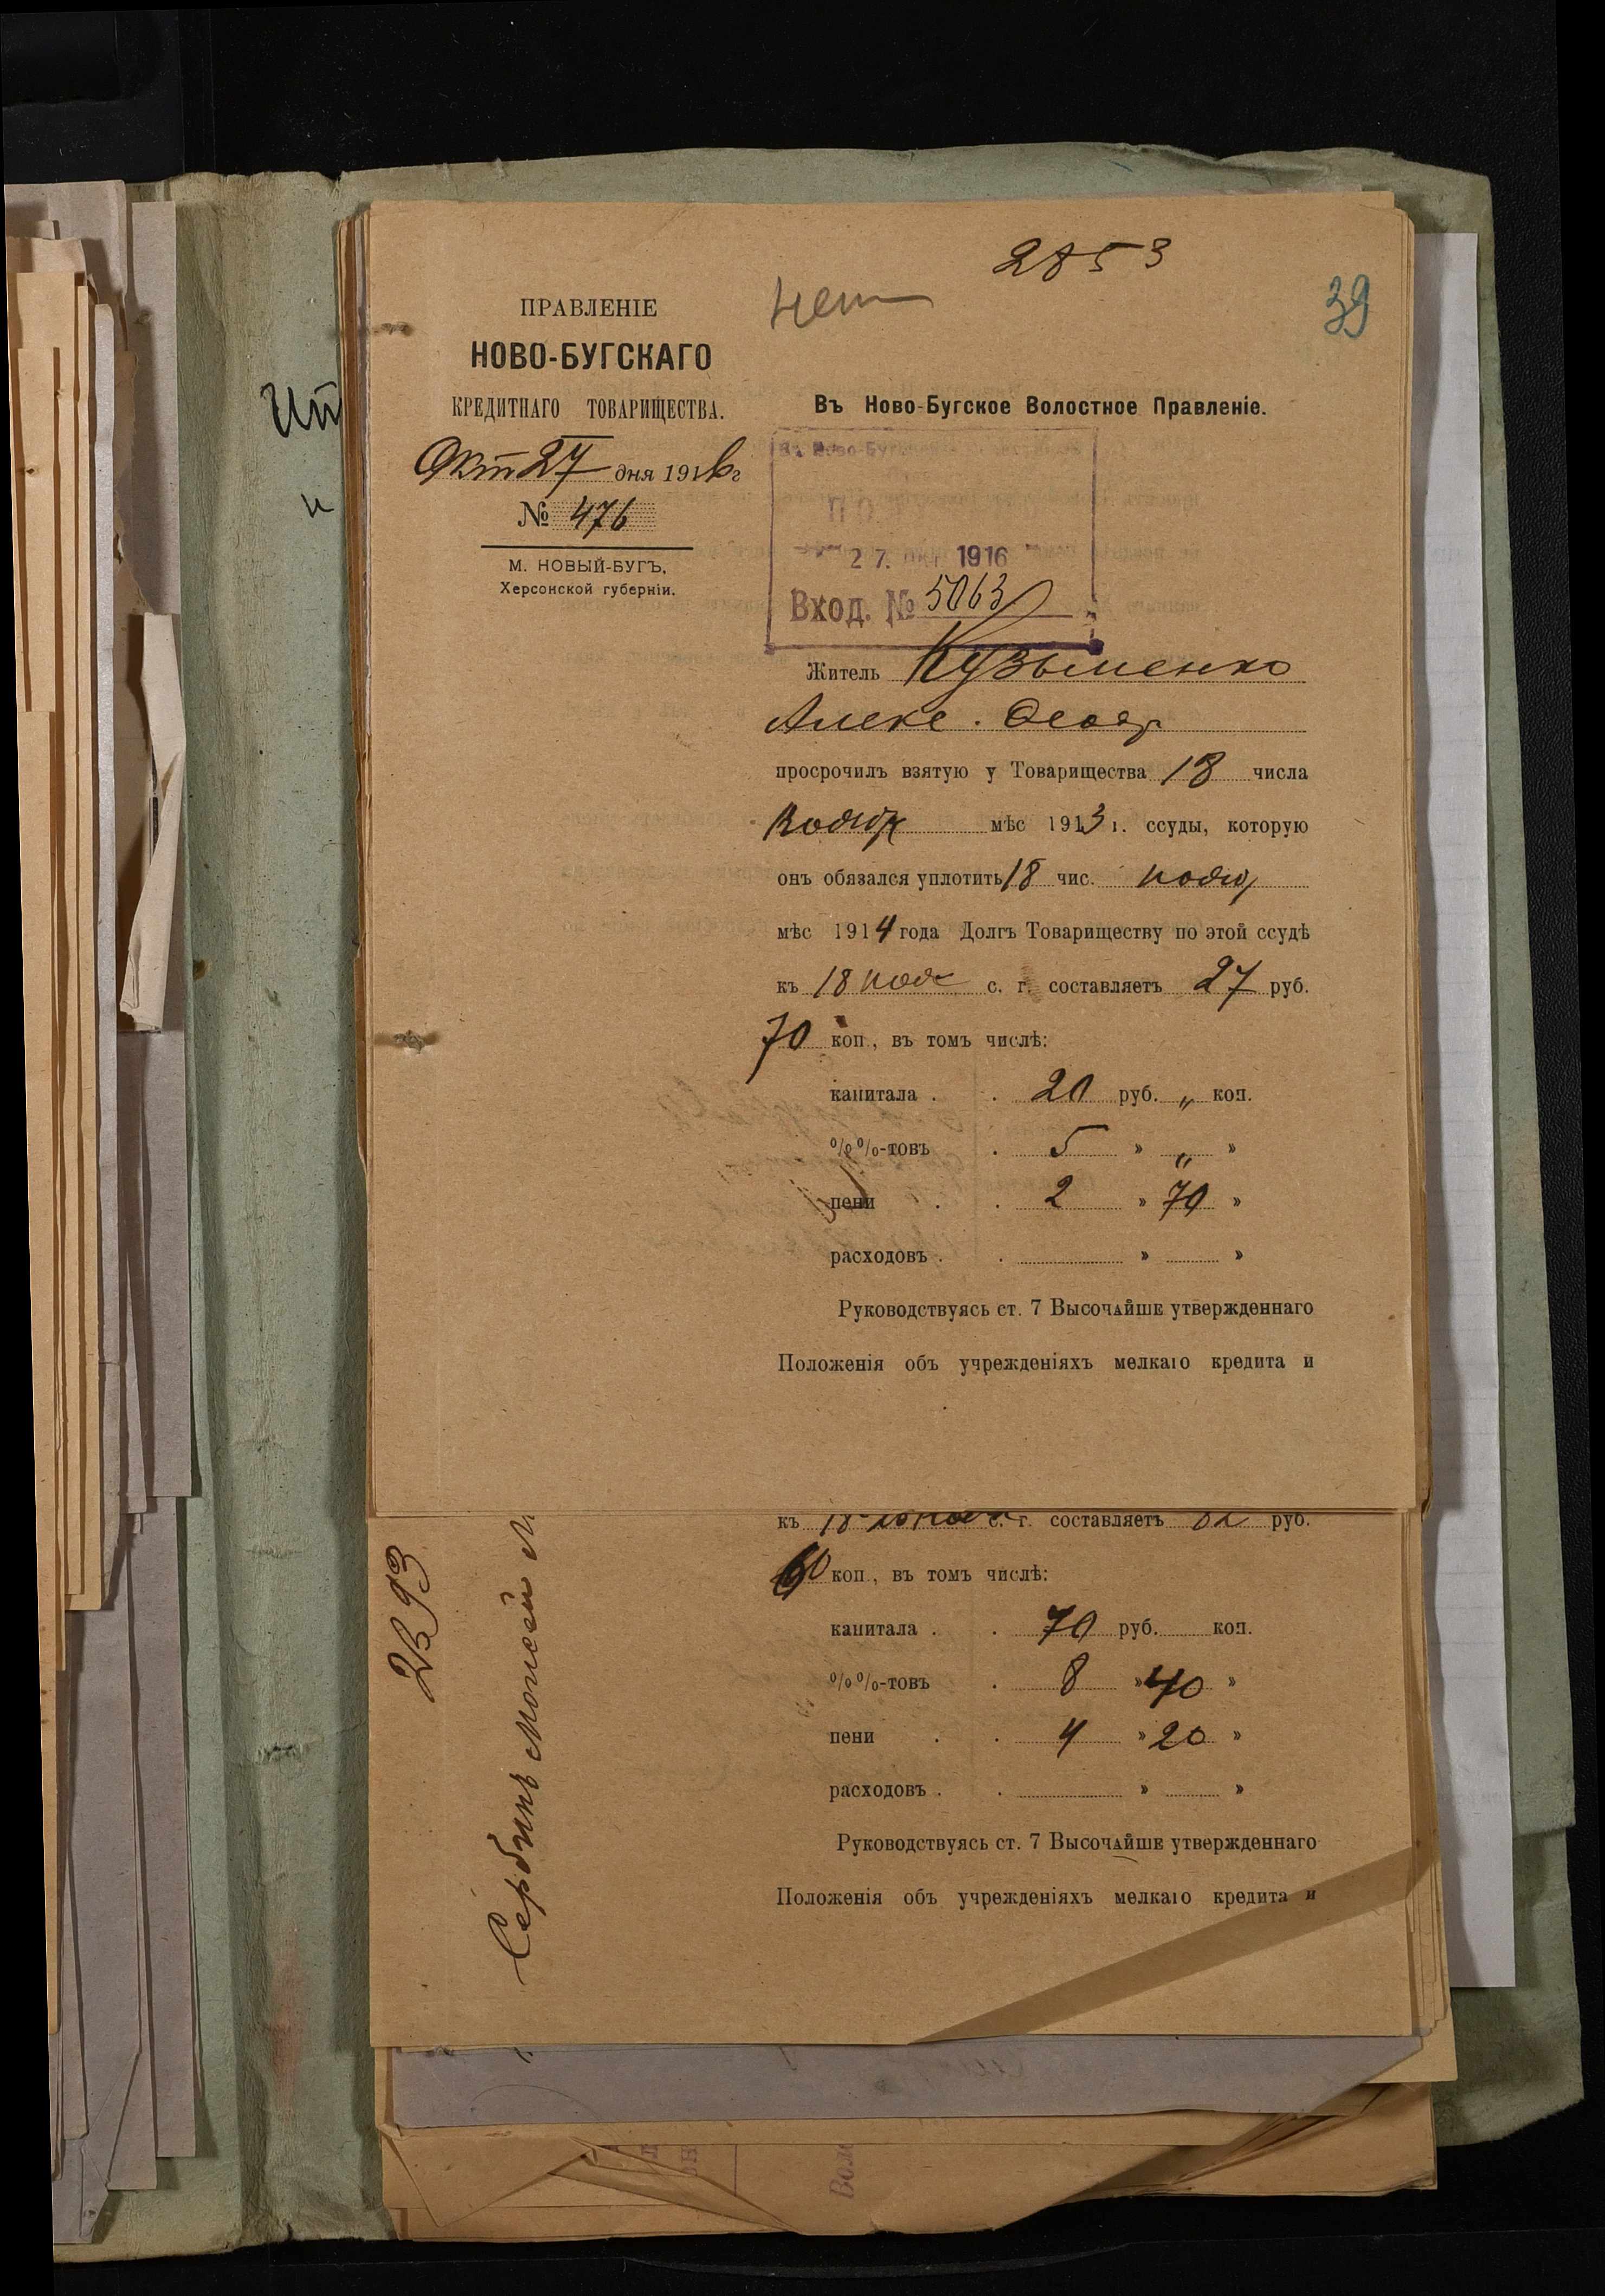 2853
нет
39
ПРАВЛЕНІЕ
НОВО-БУГСКАГО
КРЕДИТНАГО ТОВАРИЩЕСТВА.
Окт 27 дня 1916 г
№ 476
М. НОВЫЙ-БУГЪ,
Херсонской губерніи.
Въ Ново-Бугское Волостное Правленіе.
27. ОКТ 1916
Вход. № 5063
Житель Кузьменко
Алекс.
просрочилъ взятую у Товарищества 18 числа
мѣс 1913 г. ссуды, которую
онъ обязался уплотить 18 чис.
мѣс 1914 года Долгъ Товариществу по этой ссудѣ
къ 18 с. г. составляетъ 27 руб.
70 коп., въ томъ числѣ:
капитала . . 20 руб. „ коп.
%%-товъ . 5 » „ »
пени . . 2 » 70 »
расходовъ . . » »
Руководствуясь ст. 7 Высочайше утвержденнаго
Положенія объ учрежденіяхъ мелкаго кредита и
къ 18 с. г. составляетъ руб.
60 коп., въ томъ числѣ:
капитала . . 70 руб. коп.
%%-товъ . 8 » 40 »
пени . . 4 » 20 »
расходовъ . . » »
Руководствуясь ст. 7 Высочайше утвержденнаго
Положенія объ учрежденіяхъ мелкаго кредита и
Сербинъ Моисей